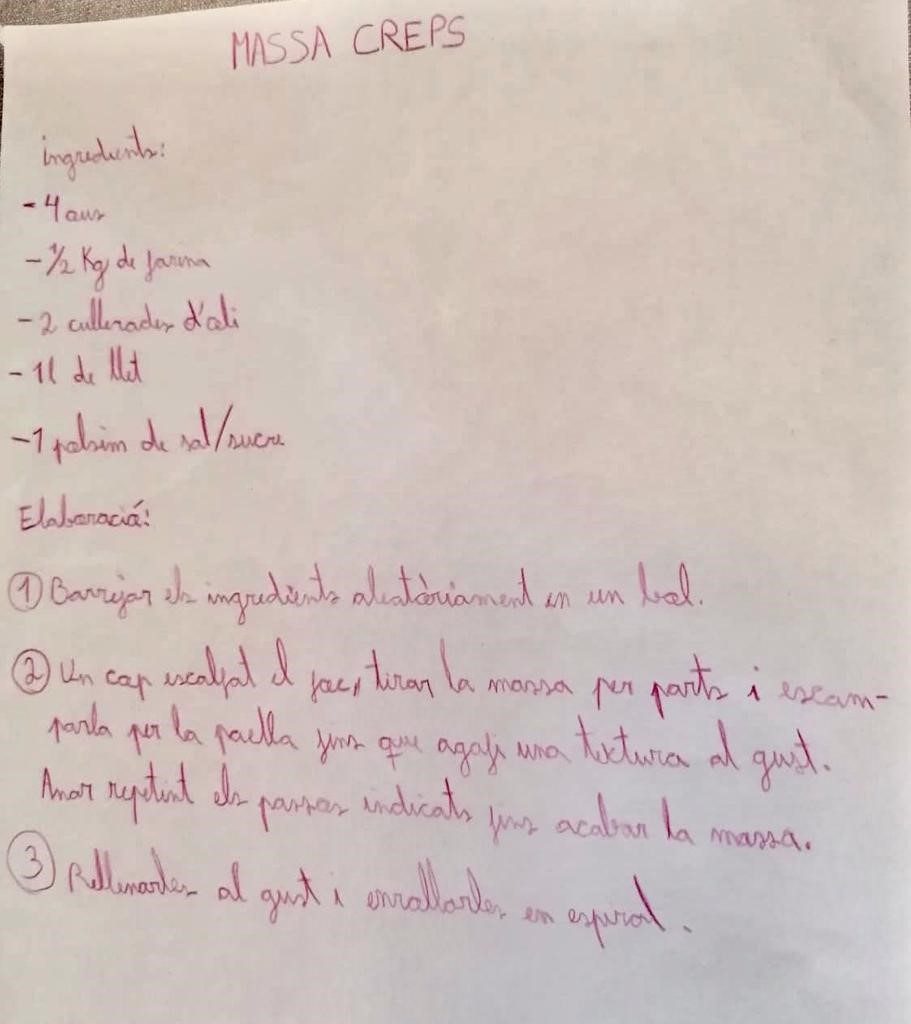 MASSA CREPS
ingredients:
- 4 ous
- 1/2 Kg de farina
- 2 cullerades d'oli
- 1l de llet
- 1 polsim de sal/sucre
Elaboració:
1 Barrejar els ingredients aleatòriament en un bol.
2 Un cap escalfat el foc, tirar la massa per parts i escam-
parla per la paella fins que agafi una textura al gust.
Anar repetint els passos indicats fins acabar la massa.
3 Rellenarles al gust i enrollarles en espiral.